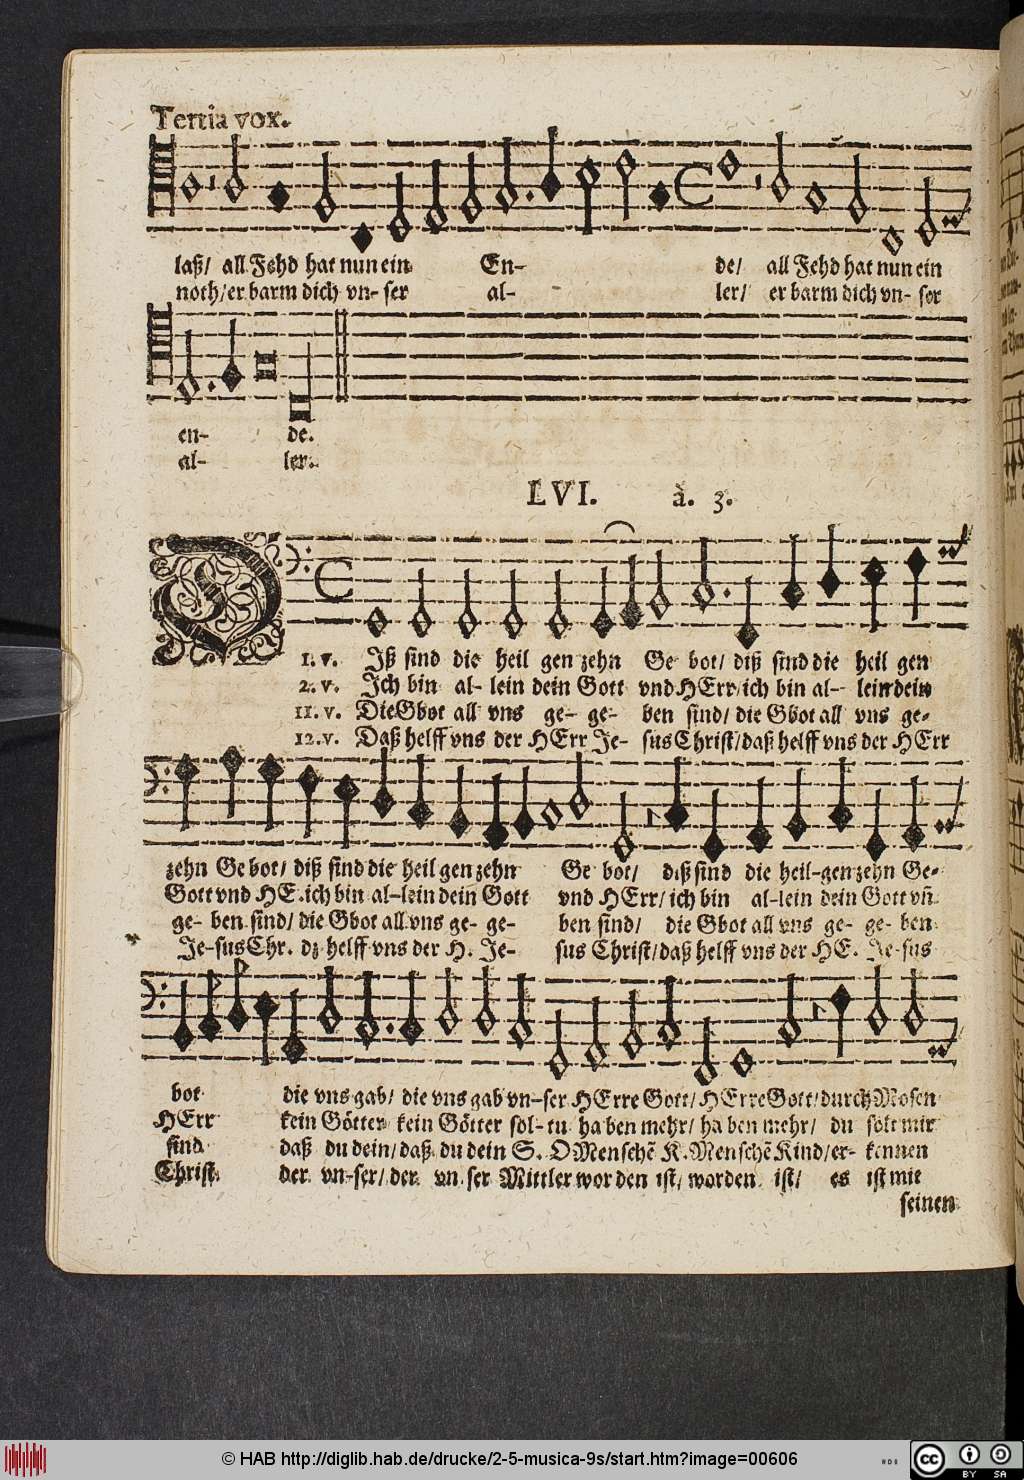 Tertia vox.
laß/ all Fehd hat nun ein En- de/ all Fehd hat nun ein
noth/ er barm dich vn- ser al- ler/ er barm dich vn- ser
en- de.
al- ler.
LVI. à. 3.
D
1. v. Jß sind die heil gen zehn Ge bot/ diß sind die heil gen
2. v. Jch bin al- lein dein Gott vnd HErr/ ich bin al- lein dein
11. v. Die Gbot all vns ge- ge- ben sind/ die Gbot all vns ge-
12. v. Daß helff vns der HErr Je- sus Christ/ daß helff vns der HErr
zehn Ge bot/ diß sind die heil gen zehn Ge bot/ diß sind die heil-gen zehn Ge-
Gott vnd HE. ich bin al-lein dein Gott vnd HErr/ ich bin al-lein dein Gott vñ
ge- ben sind/ die Gbot all vns ge- ge- ben sind/ die Gbot all vns ge- ge- ben
Je-sus Chr. dz helff vns der H. Je- sus Christ/ daß helff vns der HE. Je-sus
bot die vns gab/ die vns gab vn-ser HErre Gott/ HErre Gott/ durch Mosen
HErr kein Götter kein Götter sol- tu ha ben mehr/ ha ben mehr/ du solt mir
sind daß du dein/ daß du dein S. O Menschẽ K. Menschẽ Kind/ er- kennen
Christ der vn-ser/ der vn ser Mittler wor den ist/ worden ist/ es ist mit
seinen
© HAB http://diglib.hab.de/drucke/2-5-musica-9s/start.htm?image=00606
cc BY SA